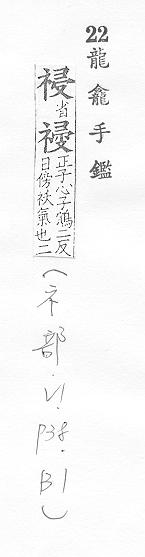 22龍龕手鑑
祲省祲正子心子鴆二反
日傍祅氣也二
(示部.V1.P38.B1)